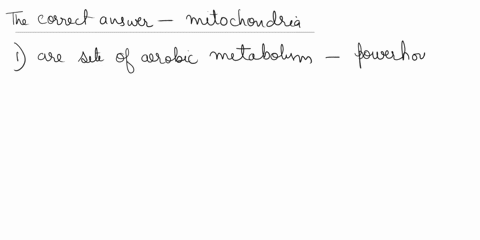 The correct answer – mitochondria
1) are site of aerobic metabolism – powerhou